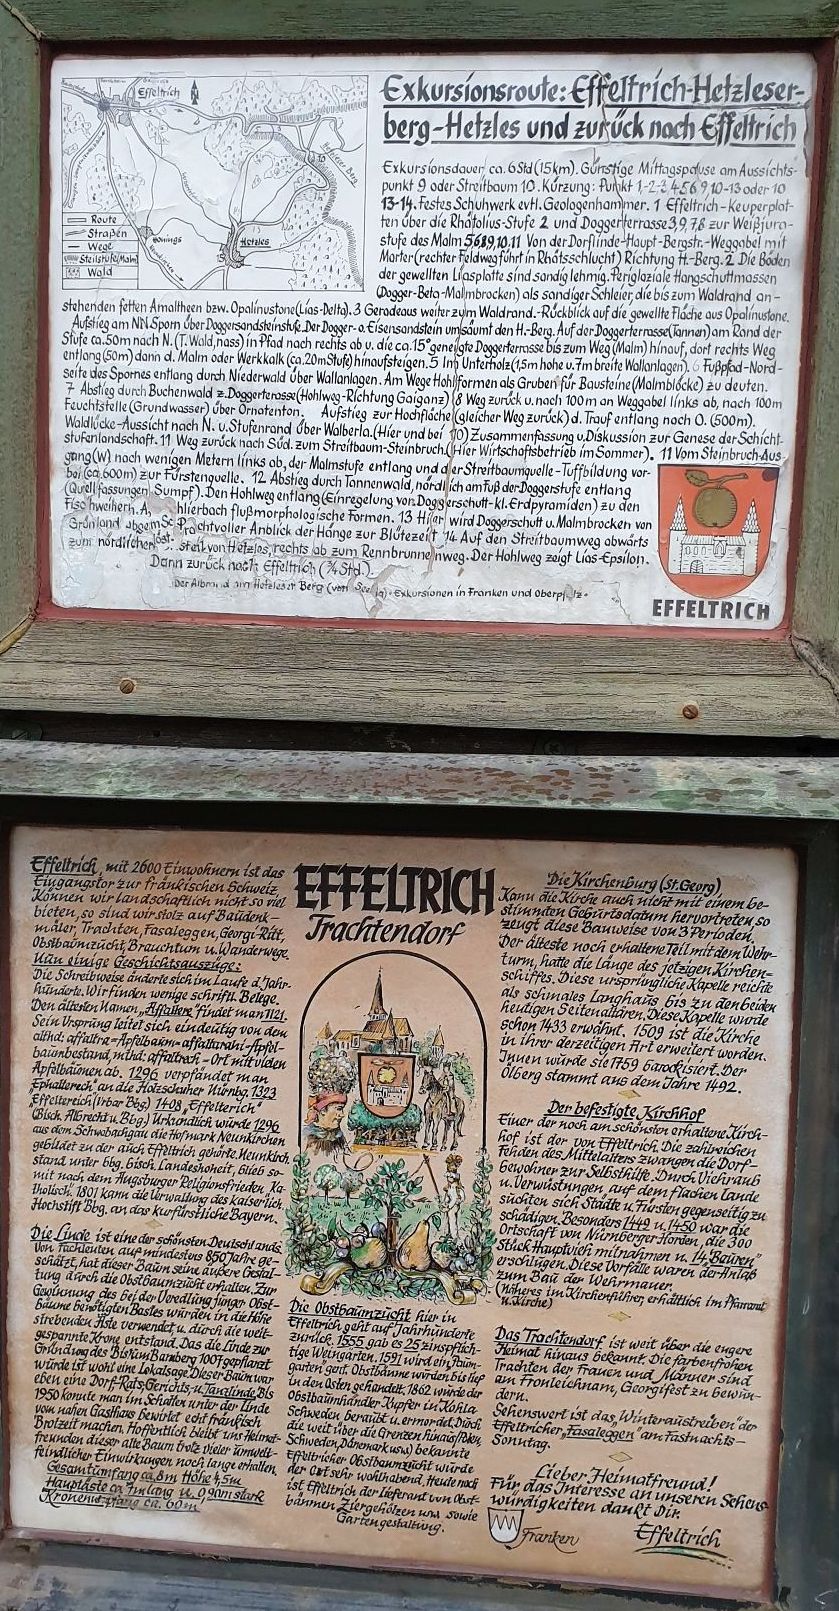 Effeltrich
Route
Straßen
Wege
Steilstufe(Malm)
Wald
Honings
Hetzles
Exkursionsroute: Effeltrich-Hetzleser-
berg-Hetzles und zurück nach Effeltrich
Exkursionsdauer ca. 6Std(15km). Günstige Mittagspause am Aussichts-
punkt 9 oder Streitbaum 10. Kürzung: Punkt 1-2-3 4 5 6 9 10-13 oder 10
13-14. Festes Schuhwerk evtl. Geologenhammer. 1 Effeltrich-Keuperplat-
ten über die Rhätolius-Stufe 2 und Doggerterrasse 3,9,7,8 zur Weißjura-
stufe des Malm 5689,10,11 Von der Dorflinde-Haupt-Bergstr.-Weggabel mit
Marter(rechter Feldweg führt in Rhätsschlucht) Richtung H.-Berg. 2 Die Böden
der gewellten Liasplatte sind sandig lehmig. Periglaziale Hangschuttmassen
(Dogger-Beta-Malmbrocken) als sandiger Schleier, die bis zum Waldrand an-
stehenden fetten Amaltheen bzw. Opalinustone(Lias-Delta). 3 Geradeaus weiter zum Waldrand.-Rückblick auf die gewellte Fläche aus Opalinustone.
Aufstieg am NN. Sporn über Doggersandsteinstufe. Der Dogger- o. Eisensandstein umsäumt den H.-Berg. Auf der Doggerterrasse(Tannen) am Rand der
Stufe ca. 50m nach N. (T. Wald, nass) in Pfad nach rechts ab u. die ca. 15° geneigte Doggerterrasse bis zum Weg (Malm) hinauf, dort rechts Weg
entlang (50m) dann d. Malm oder Werkkalk (ca. 20m Stufe) hinaufsteigen. 5 Im Unterholz(1,5m hohe u. 7m breite Wallanlagen). 6 Fußpfad-Nord-
seite des Spornes entlang durch Niederwald über Wallanlagen. Am Wege Hohlformen als Gruben für Bausteine (Malmblöcke) zu deuten.
7 Abstieg durch Buchenwald z. Doggerterasse(Hohlweg-Richtung Gaiganz) 8 Weg zurück u. nach 100m an Weggabel links ab, nach 100m
Feuchtstelle (Grundwasser) über Ornatenton. Aufstieg zur Hochfläche (gleicher Weg zurück) d. Trauf entlang nach O. (500m).
Waldlücke-Aussicht nach N. u. Stufenrand über Walberla. (Hier und bei 10) Zusammenfassung u. Diskussion zur Genese der Schicht-
stufenlandschaft. 11 Weg zurück nach Süd. zum Streitbaum-Steinbruch. (Hier Wirtschaftsbetrieb im Sommer). 11 Vom Steinbruch-Aus-
gang (W) nach wenigen Metern links ab, der Malmstufe entlang und der Streitbaumquelle-Tuffbildung vor-
bei (ca. 600m) zur Fürstenquelle. 12 Abstieg durch Tannenwald, nördlich am Fuß der Doggerstufe entlang
(Quellfassungen Sumpf). Den Hohlweg entlang (Einregelung von Doggerschutt-kl. Erdpyramiden) zu den
Fischweihern. A hlierbach flußmorphologische Formen. 13 Hier wird Doggerschutt u. Malmbrocken von
Grünland abgem Prachtvoller Anblick der Hänge zur Blütezeit 14 Auf den Streitbaumweg abwärts
zum nördlichen von Hetzles, rechts ab zum Rennbrunnenweg. Der Hohlweg zeigt Lias-Epsilon.
Dann zurück nach Effeltrich (¾ Std.)
Der Albrand am Hetzleser Berg (von ) - Exkursionen in Franken und Oberpfalz -
EFFELTRICH
Effeltrich, mit 2600 Einwohnern ist das
Eingangstor zur fränkischen Schweiz,
Können wir landschaftlich nicht so viel
bieten, so sind wir stolz auf Baudenk-
mäler, Trachten, Fasaleggen, Georgi-Ritt,
Obstbaumzucht, Brauchtum u. Wanderwege.
Nun einige Geschichtsauszüge:
Die Schreibweise änderte sich im Laufe d. Jahr-
hunderte. Wir finden wenige schriftl. Belege.
Den ältesten Namen, „Affaltere" findet man 1121.
Sein Ursprung leitet sich eindeutig von dem
althd: affaltra-Apfelbaum-affaltarahi-Apfel-
baumbestand, mhd: affaltrach-Ort mit vielen
Apfelbäumen ab. 1296 verpfändet man
„Ephallerech" an die Holzschuher Nürnbg. 1323
Effeltereich (Urbar Bbg) 1408 „Effelterich"
(Bisch. Albrecht u. Bbg) Urkundlich würde 1296
aus dem Schwabachgau die Hofmark Neunkirchen
gebildet zu der auch Effeltrich gehörte. Neunkirch.
stand unter bbg. bisch. Landeshoheit, blieb so-
mit nach dem Augsburger Religionsfrieden Ka-
tholisch. 1801 kam die Verwaltung des kaiserlich.
Hochstift Bbg. an das kurfürstliche Bayern.
Die Linde ist eine der schönsten Deutschlands
Von Fachleuten auf mindestens 850 Jahre ge-
schätzt, hat dieser Baum seine äußere Gestal-
tung durch die Obstbaumzucht erhalten. Zur
Gewinnung des bei der Veredlung junger Obst-
bäume benötigten Bastes wurden in die Höhe
strebenden Äste verwendet, u. durch die weit-
gespannte Krone entstand. Das die Linde zur
Gründung des Bistum Bamberg 1007 gepflanzt
würde ist wohl eine Lokalsage. Dieser Baum war
eben eine Dorf-Rats-Gerichts-u. Tanzlinde. Bis
1950 konnte man im Schatten unter der Linde
vom nahen Gasthaus bewirtet echt fränkisch
Brotzeit machen. Hoffentlich bleibt uns Heimat-
freunden dieser alte Baum trotz vieler umwelt-
feindlicher Einwirkungen noch lange erhalten.
Gesamtumfang ca. 8m Höhe 4,5m
Hauptäste ca. 7m lang u. 0,90m stark
Kronenumfang ca. 60m,
EFFELTRICH
Trachtendorf
Die Obstbaumzucht hier in
Effeltrich geht auf Jahrhunderte
zurück. 1555 gab es 25 zinspflich-
tige Weingärten. 1591 wird ein „Baum-
garten" gert. Obstbäume würden bis tief
in den Osten gehandelt, 1862 würde der
Obstbaumhändler Kupfer in Kohla
Schweden beraubt u. ermordet. Durch
die weit über die Grenzen hinaus (Polen,
Schweden, Dänemark usw) bekannte
Effeltricher Obstbaumzucht würde
der Ort sehr wohlhabend. Heute noch
ist Effeltrich der Lieferant von Obst-
bäumen Ziergehölzen usw sowie
Gartengestaltung.
Die Kirchenburg (St. Georg),
Kann die Kirche auch nicht mit einem be-
stimmten Geburtsdatum hervortreten, so
zeugt diese Bauweise von 3 Perioden.
Der älteste noch erhaltene Teil mit dem Wehr-
turm, hatte die Länge des jetzigen Kirchen-
schiffes. Diese ursprüngliche Kapelle reichte
als schmales Langhaus bis zu den beiden
heutigen Seitenaltären. Diese Kapelle wurde
schon 1433 erwähnt. 1509 ist die Kirche
in ihrer derzeitigen Art erweitert worden.
Innen würde sie 1759 barockisiert. Der
Ölberg stammt aus dem Jahre 1492.
Der befestigte Kirchhof
Einer der noch am schönsten erhaltene Kirch-
hof ist der von Effeltrich. Die zahlreichen
Fehden des Mittelalters zwangen die Dorf-
bewohner zur Selbsthilfe. Durch Viehraub
u. Verwüstungen, auf dem flachen Lande
suchten sich Städte u. Fürsten gegenseitig zu
schädigen. Besonders 1449 u. 1450 war die
Ortschaft von Nürnberger Horden, die 300
Stück Hauptvieh mitnahmen u. 14 „Bauren"
erschlugen. Diese Vorfälle waren der Anlaß
zum Bau der Wehrmauer.
(näheres im Kirchenführer, erhältlich im Pfarramt
u. Kirche)
Das Trachtendorf ist weit über die engere
Heimat hinaus bekannt. Die farbenfrohen
Trachten der Frauen und Männer sind
am Fronleichnam, Georgifest zu bewun-
dern.
Sehenswert ist das „Winteraustreiben" der
Effeltricher „Fasaleggen" am Fastnachts-
Sonntag.
Lieber Heimatfreund!
Für das Interesse an unseren Sehens-
würdigkeiten dankt Dir.
Franken
Effeltrich